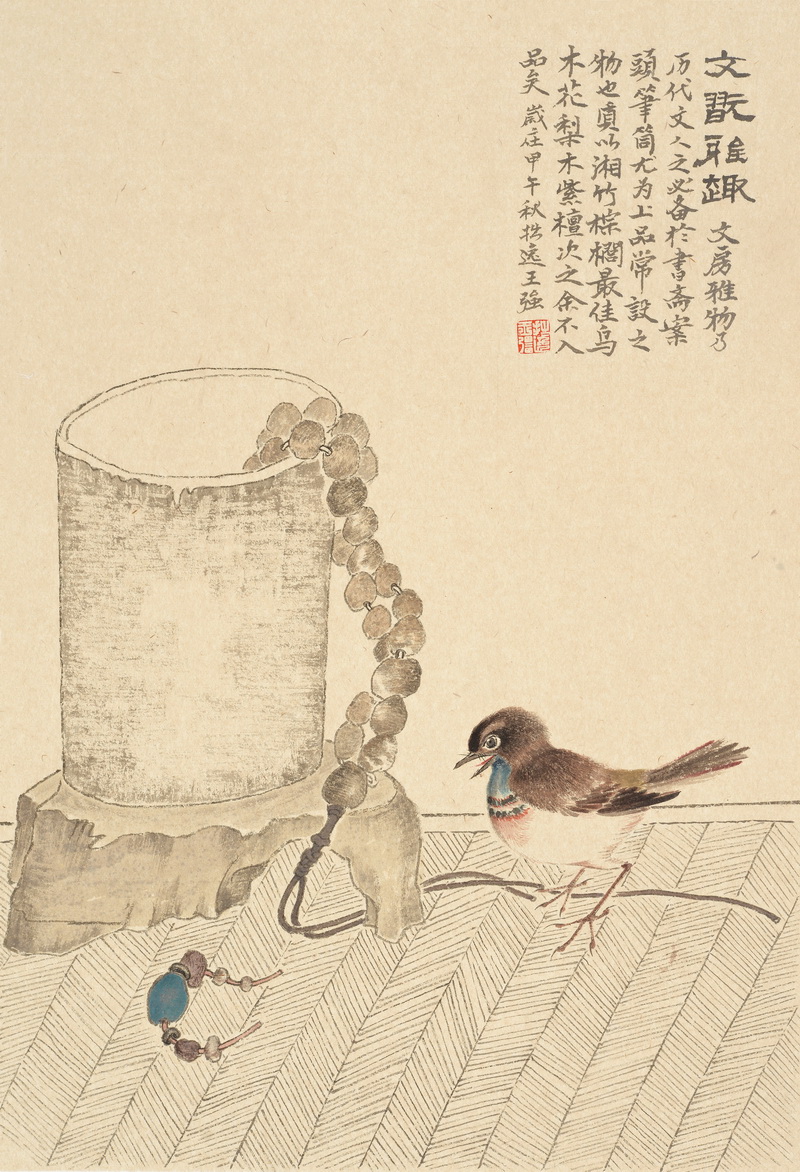 文翫雅趣 文房雅物乃
历代文人之必备於書斋案
頭筆筒尤为上品常設之
物也真以湘竹棕櫚最佳乌
木花梨木紫檀次之余不入
品矣 歲在甲午秋拙远王强